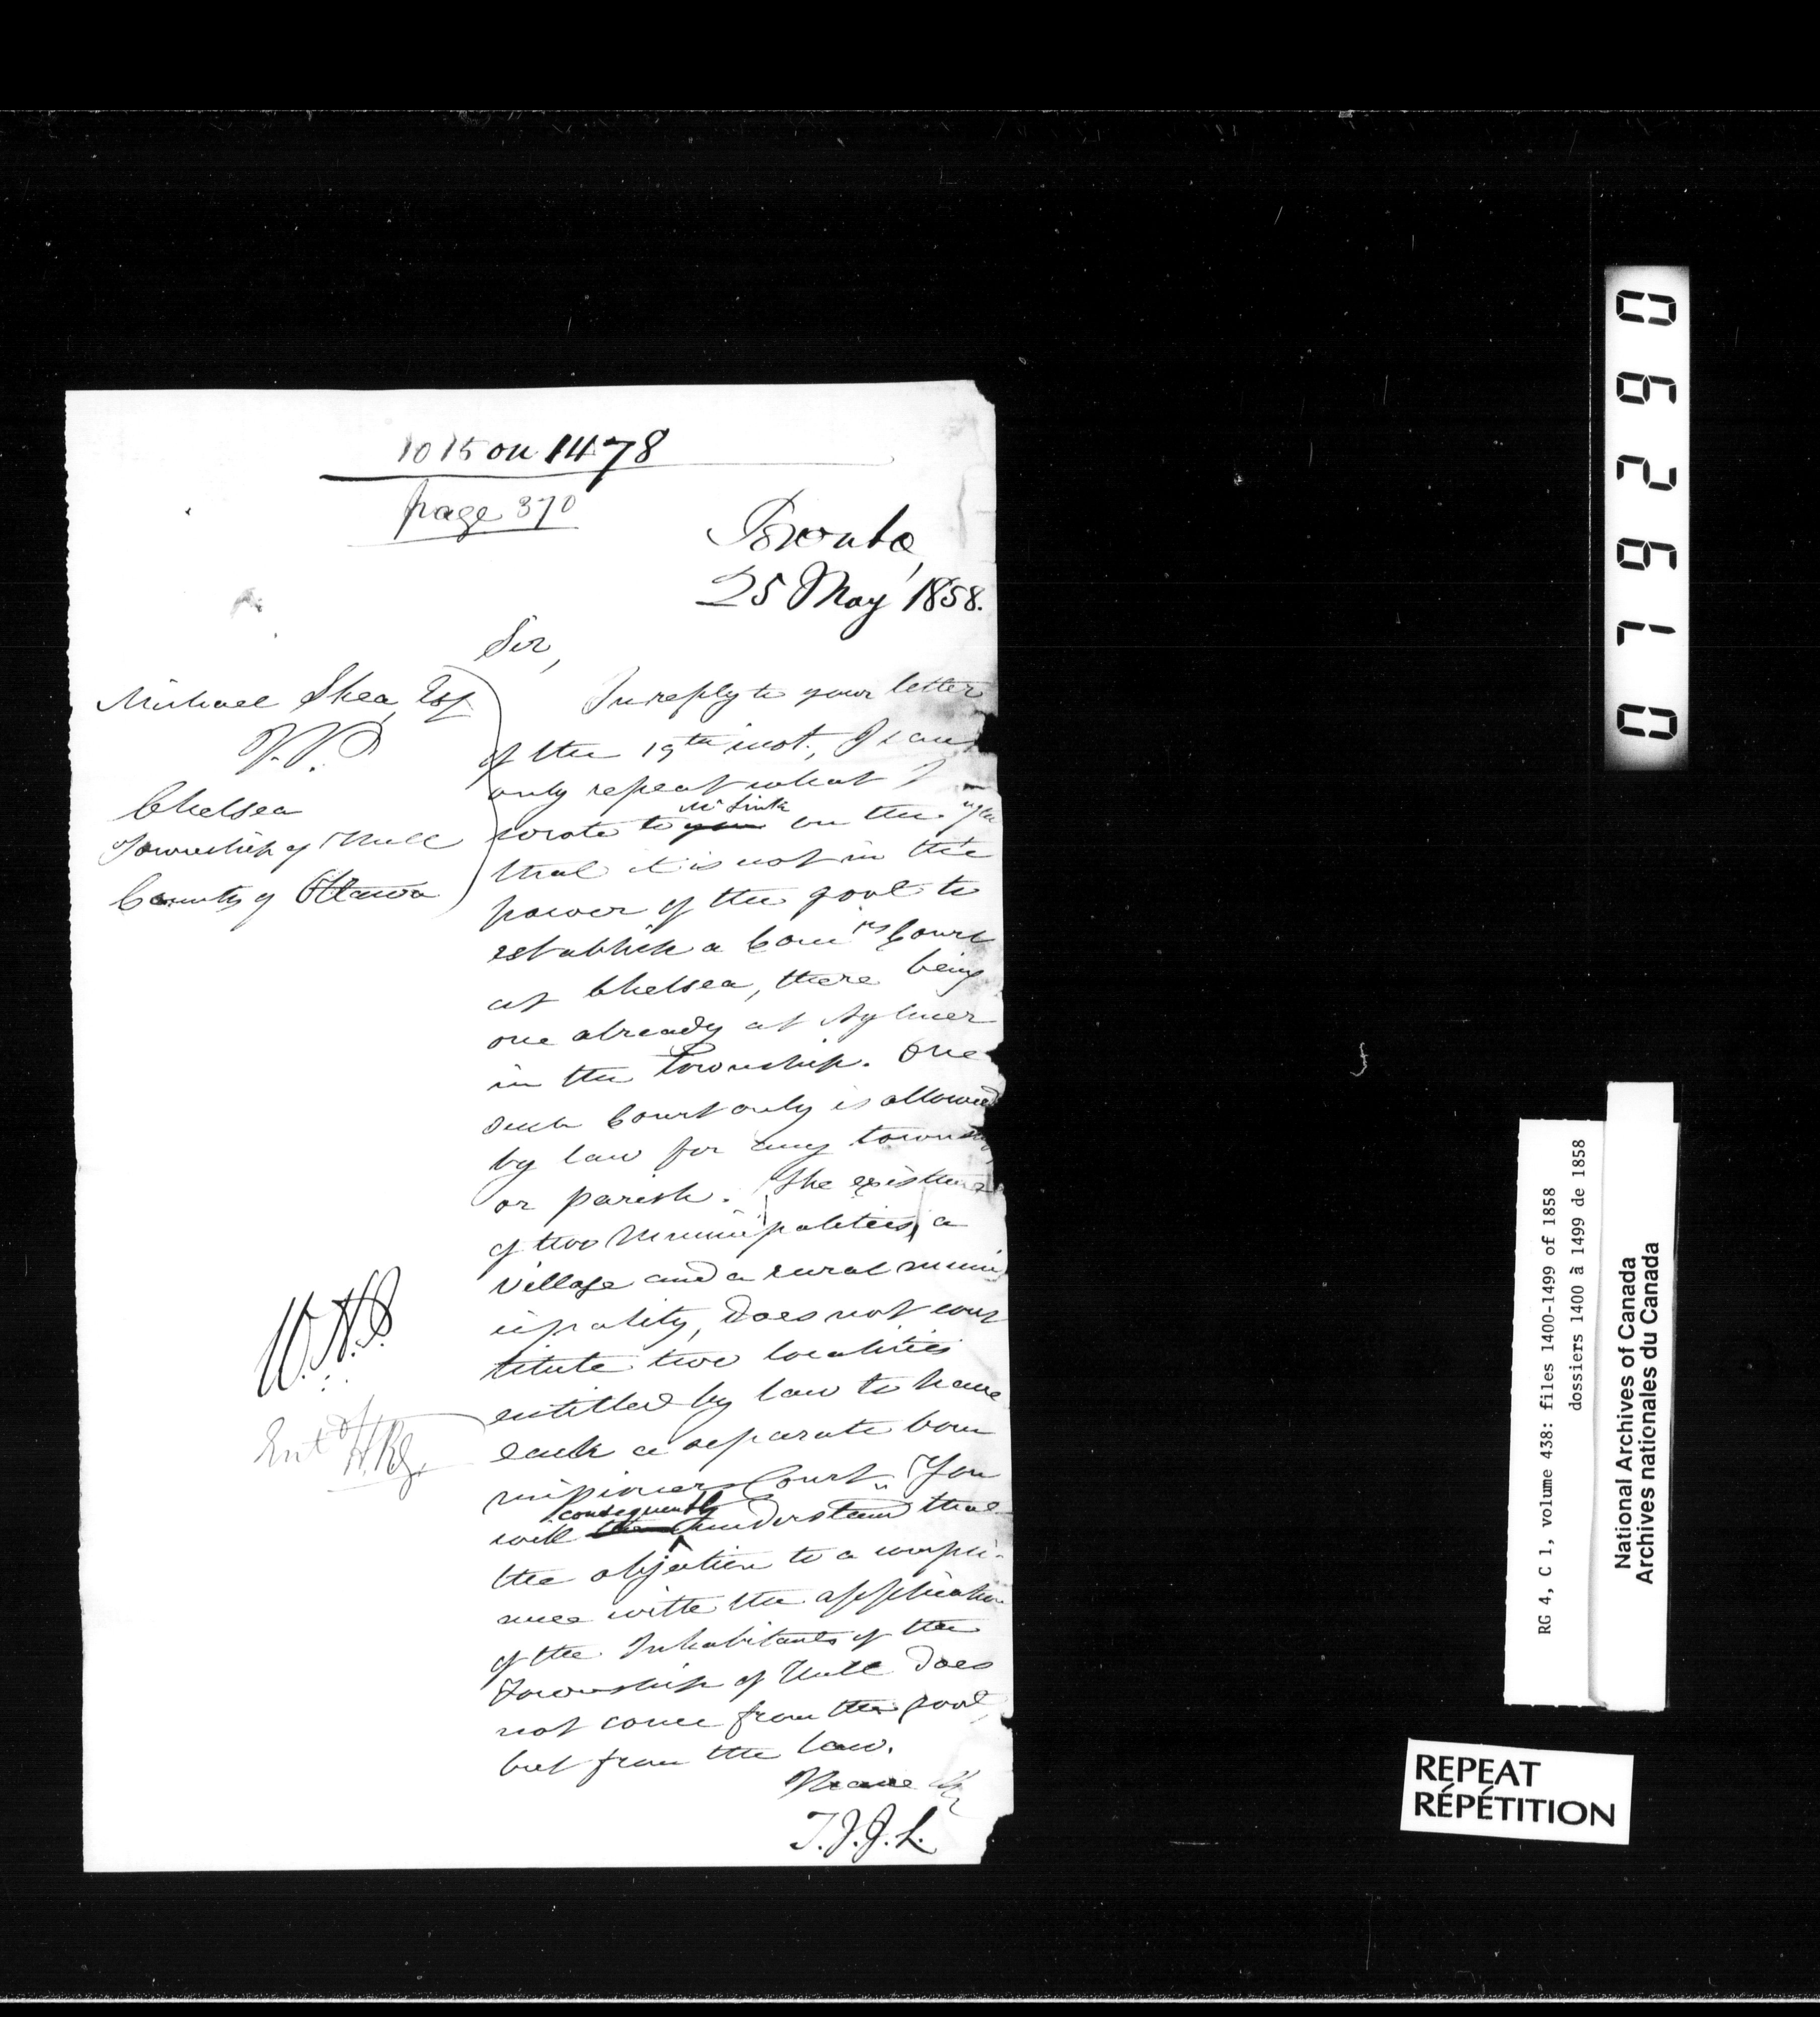 1015 on 1478
page 370
Toronto,
25 May 1858.
Sir,
Michael Shea, Esq
J.P.
Chelsea
Township of Hull
County of Ottawa
In reply to your letter
of the 19th inst., I can
only repeat what I
wrote to you Mr on the
that it is not in the
power of the govt to
establish a Comrs Court
at Chelsea, there being
one already at Aylmer
in the Township. One
such Court only is allowed
by law for any township
or parish. The existence
of two Municipalities, a
village and a rural munic
ipality, does not cons
titute two localities
entitled by law to have
each a separate Com
missioners Court. You
will consequently understand that
the objection to a complia-
nce with the application
of the Inhabitants of the
Township of Hull does
not come from the govt,
but from the law.
T.J.J.L.
W.H.
Entd
RG 4, C 1, volume 438: files 1400-1499 of 1858
dossiers 1400 à 1499 de 1858
National Archives of Canada
Archives nationales du Canada
REPEAT
RÉPÉTITION
0 1 6 2 6 0